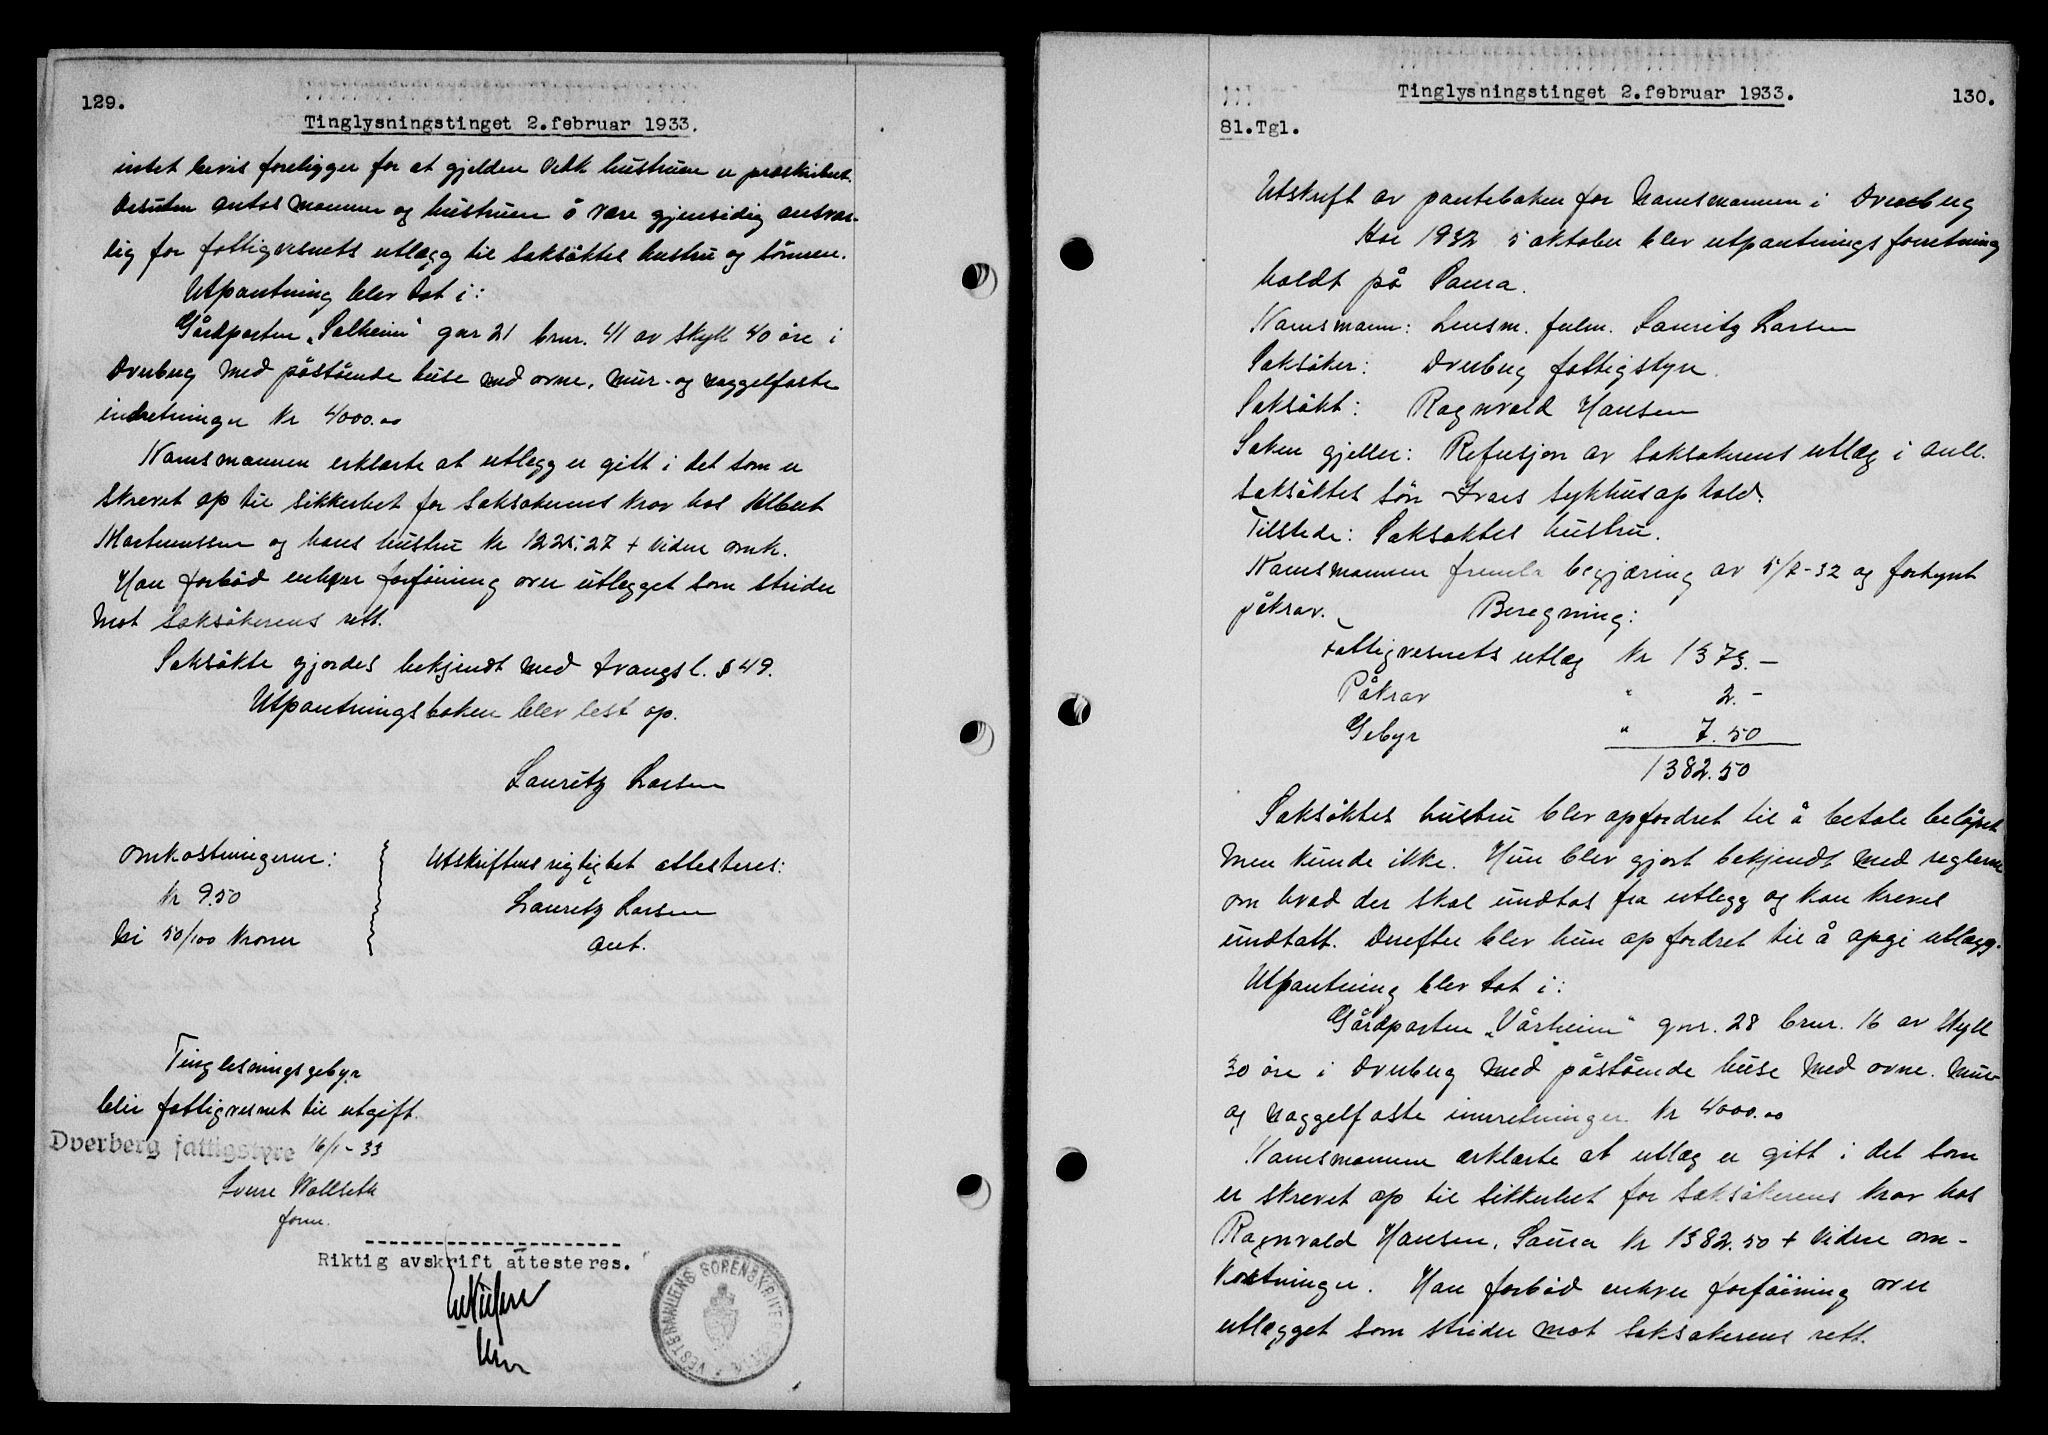 129.
Tinglysningstinget 2.februar 1933.
intet bevis foreligger for at gjelden vedk hustruen er preskribert.
Desuten antas mannen og hustruen å være gjensidig ansvar-
lig for fattigvesnets utlægg til saksøktes hustru og sønnen.
Utpantning blev tat i:
Gårdparten "Solheim" gnr 21 brnr. 41 av skyld 40 øre i
Dverberg med påstående huse med ovne, mur- og naggelfaste
indretninger kr 4000.00
Namsmannen erklærte at utlegg er gitt i det som er
skrevet op til sikkerhet for saksøkerens krav hos Albert
Martinussen og hans hustru kr 1225.27 + videre omk.
Han forbød enhver forføining over utlegget som strider
mot saksøkerens rett.
Saksøkte gjordes bekjendt med tvangsl. § 49.
Utpantningsboken blev lest op.
Lauritz Larsen
Omkostningerne:
kr 9.50
Ni 50/100 kroner
Utskriftens rigtighet attesteres:
Lauritz Larsen
aut.
Tinglesningsgebyr
blir fattigvesnet til utgift.
Dverberg fattigstyre 16/1-33
form.
Riktig avskrift attesteres.
VESTERAALENS SORENSKRIVEREMBEDE
Tinglysningstinget 2.februar 1933.
130.
81.Tgl.
Utskrift av panteboken for Namsmannen i Dverberg
År 1932 5 oktober blev utpantningsforretning
holdt på Saura.
Namsmann: Lensm. fulm. Lauritz Larsen
Saksøker: Dverberg fattigstyre.
Saksøkt: Ragnvald Hansen
Saken gjelder: Refusjon av saksøkerens utlæg i anl.
saksøktes søn Ivars sykhusophold.
Tilstede: Saksøktes hustru.
Namsmannen fremla begjæring av 5/7-32 og forkynt
påkrav. Beregning:
Fattigvesnets utlæg kr 1373.-
Påkrav " 2.-
Gebyr " 7.50
1382.50
Saksøktes hustru blev opfordret til å betale beløpet
men kunde ikke. Hun blev gjort bekjendt med reglerne
om hvad der skal undtas fra utlegg og kan kreves
undtatt. Derefter blev hun opfordret til å opgi utlægg.
Utpantning blev tat i:
Gårdparten "Vårheim" gnr. 28 brnr. 16 av skyld
30 øre i Dverberg med påstående huse med ovne. mur-
og naggelfaste innretninger kr 4000.00
Namsmannen erklærte at utlæg er gitt i det som
er skrevet op til sikkerhet for saksøkerens krav hos
Ragnvald Hansen, Saura kr 1382.50 + videre om-
kostninger. Han forbød enhver forføining over
utlægget som strider mot saksøkerens rett.